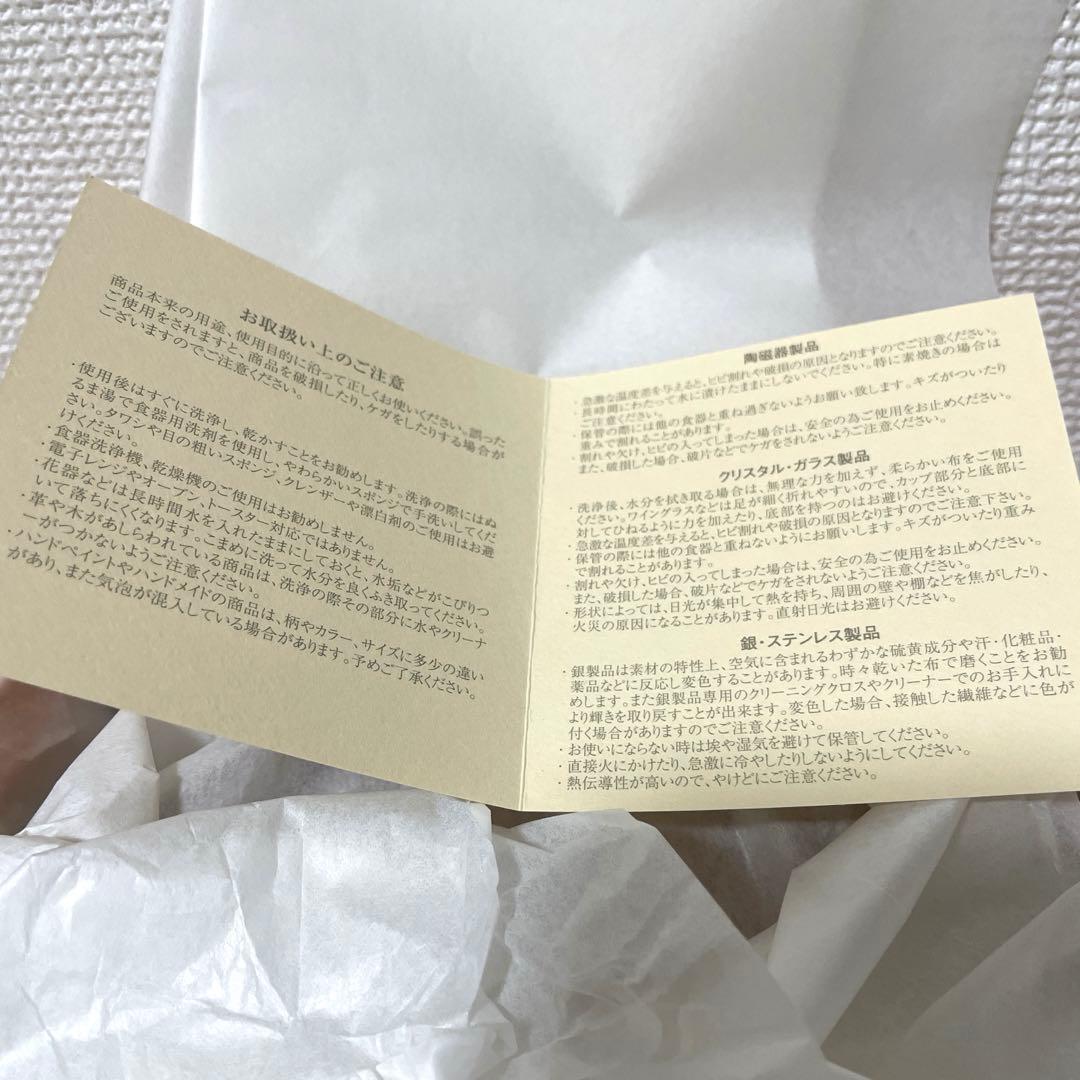 お取扱い上のご注意
商品本来の用途、使用目的に沿って正しくお使いください。誤った
ご使用をされますと、商品を破損したり、ケガをしたりする場合が
ございますのでご注意ください。
・使用後はすぐに洗浄し、乾かすことをお勧めします。洗浄の際にはぬ
るま湯で食器用洗剤を使用し、やわらかいスポンジで手洗いしてくだ
さい。タワシや目の粗いスポンジ、クレンザーや漂白剤のご使用はお避
けください。
・食器洗浄機、乾燥機のご使用はお勧めしません。
・電子レンジやオーブン、トースター対応ではありません。
・花器などは長時間水を入れたままにしておくと、水垢などがこびりつ
いて落ちにくくなります。こまめに洗って水分を良くふき取ってください。
・革や木があしらわれている商品は、洗浄の際その部分に水やクリーナ
ーがつかないようご注意ください。
・ハンドペイントやハンドメイドの商品は、柄やカラー、サイズに多少の違い
があり、また気泡が混入している場合があります。予めご了承ください。
陶磁器製品
・急激な温度差を与えると、ヒビ割れや破損の原因となりますのでご注意ください。
・長時間にわたって水に漬けたままにしないでください。特に素焼きの場合は
ご注意ください。
・保管の際には他の食器と重ね過ぎないようお願い致します。キズがついたり
重みで割れることがあります。
・割れや欠け、ヒビの入ってしまった場合は、安全の為ご使用をお止めください。
また、破損した場合、破片などでケガをされないようご注意ください。
クリスタル・ガラス製品
・洗浄後、水分を拭き取る場合は、無理な力を加えず、柔らかい布をご使用
ください。ワイングラスなどは足が細く折れやすいので、カップ部分と底部に
対してひねるように力を加えたり、底部を持つのはお避けください。
・急激な温度差を与えると、ヒビ割れや破損の原因となりますのでご注意下さい。
・保管の際には他の食器と重ねないようにお願いします。キズがついたり重み
で割れることがあります。
・割れや欠け、ヒビの入ってしまった場合は、安全の為ご使用をお止めください。
また、破損した場合、破片などでケガをされないようご注意ください。
・形状によっては、日光が集中して熱を持ち、周囲の壁や棚などを焦がしたり、
火災の原因になることがあります。直射日光はお避けください。
銀・ステンレス製品
・銀製品は素材の特性上、空気に含まれるわずかな硫黄成分や汗・化粧品・
薬品などに反応し変色することがあります。時々乾いた布で磨くことをお勧
めします。また銀製品専用のクリーニングクロスやクリーナーでのお手入れに
より輝きを取り戻すことが出来ます。変色した場合、接触した繊維などに色が
付く場合がありますのでご注意ください。
・お使いにならない時は埃や湿気を避けて保管してください。
・直接火にかけたり、急激に冷やしたりしないようにしてください。
・熱伝導性が高いので、やけどにご注意ください。